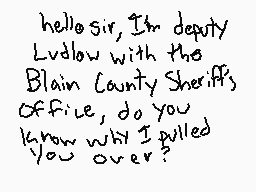 hello sir, I'm deputy
Ludlow with the
Blain County Sheriff's
office, do you
know why I pulled
you over?